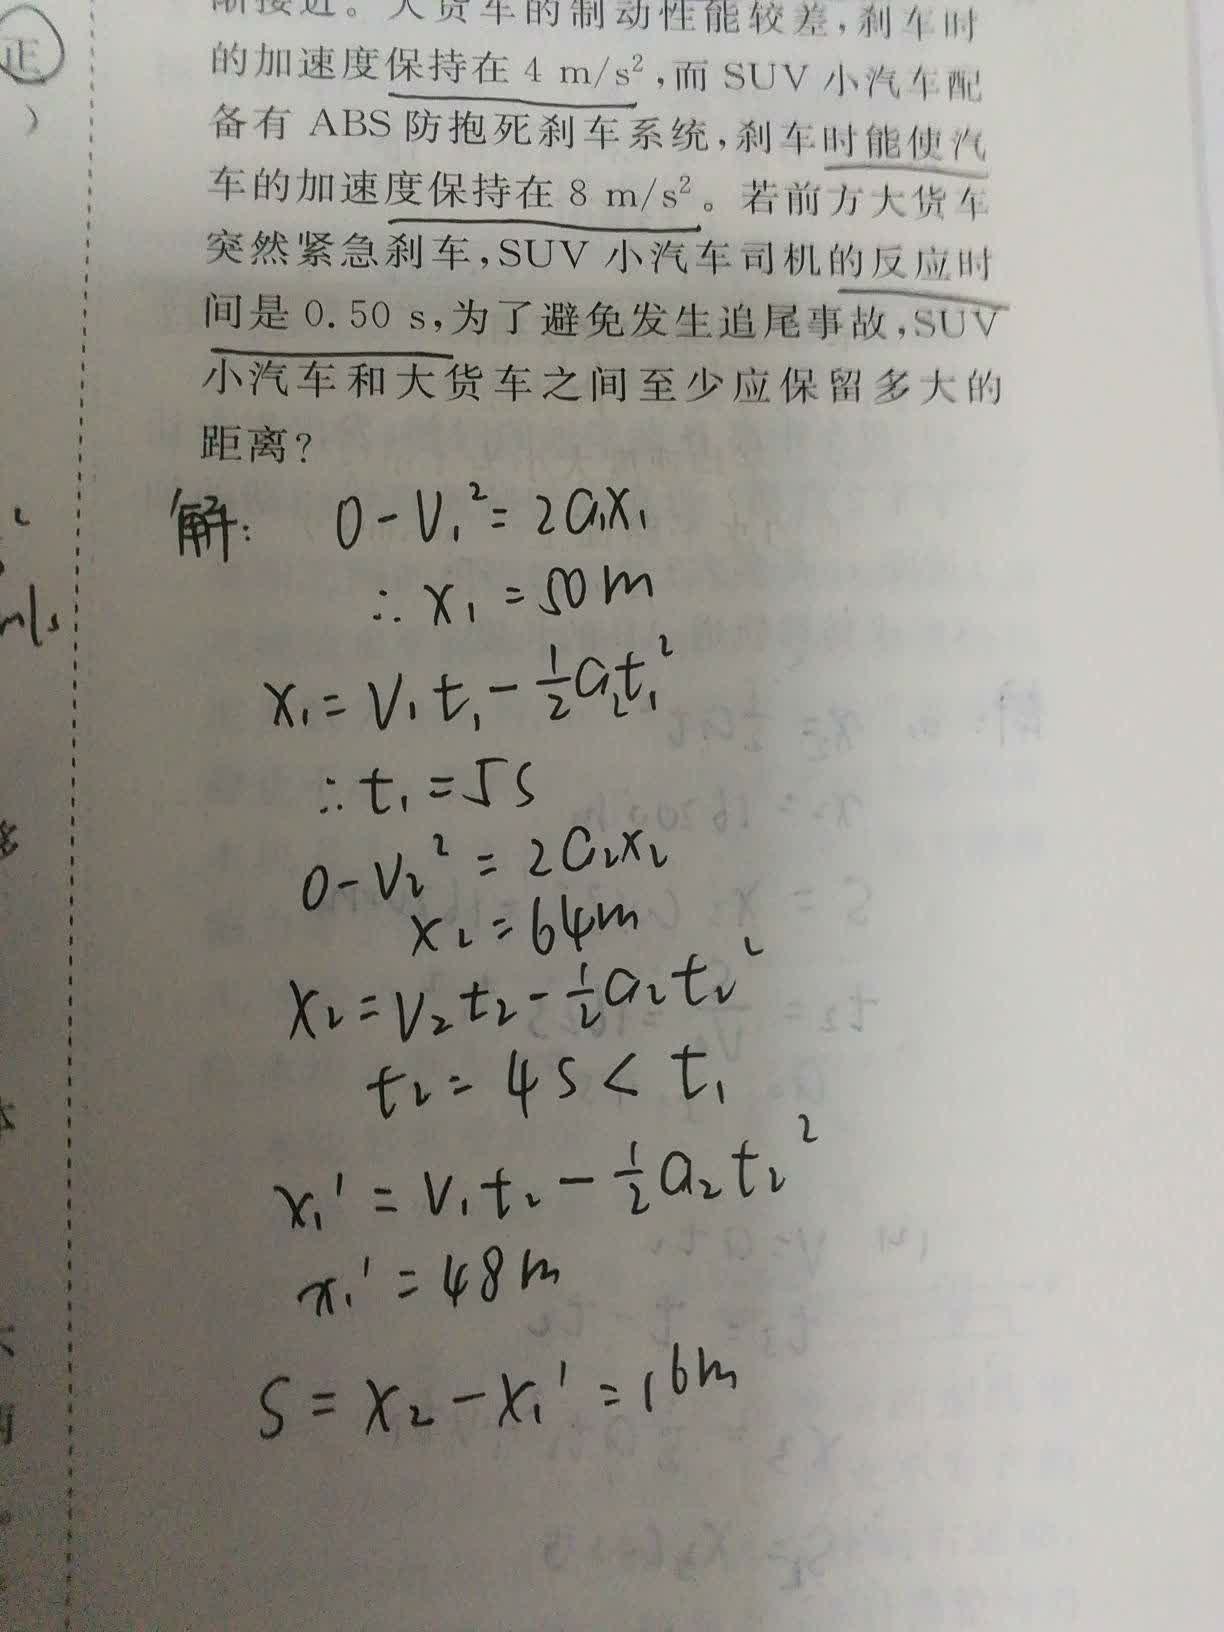 渐接近。大货车的制动性能较差,刹车时
的加速度保持在 4 m/s²,而 SUV 小汽车配
备有 ABS 防抱死刹车系统,刹车时能使汽
车的加速度保持在 8 m/s²。若前方大货车
突然紧急刹车,SUV 小汽车司机的反应时
间是 0.50 s,为了避免发生追尾事故,SUV
小汽车和大货车之间至少应保留多大的
距离?
解: 0-V₁²=2a₁x₁
∴ x₁=50m
x₁=V₁t₁-½a₂t₁²
∴t₁=5s
0-V₂²=2a₂x₂
x₂=64m
x₂=V₂t₂-½a₂t₂²
t₂=4s<t₁
x₁'=V₁t₂-½a₂t₂²
x₁'=48m
S=x₂-x₁'=16m
正
)
m/s